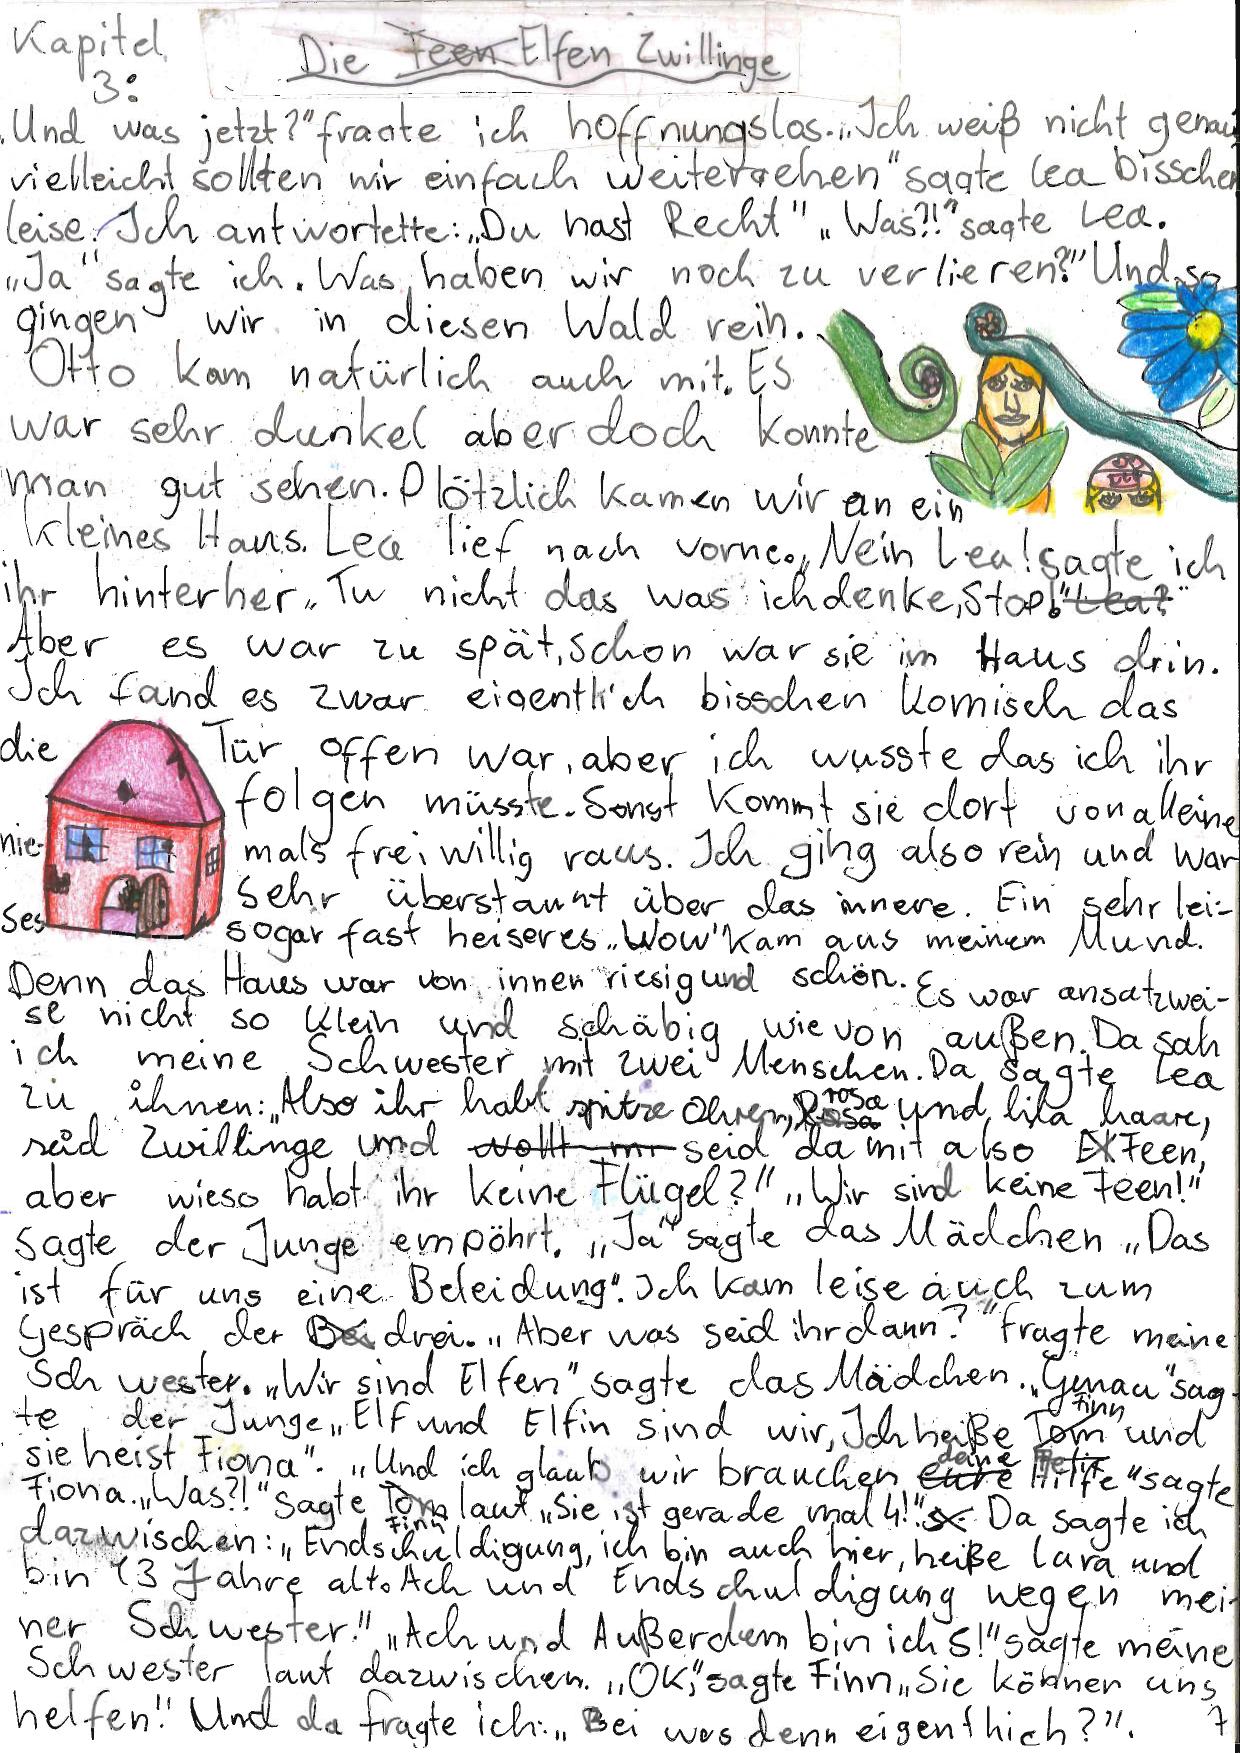 Kapitel 3:
Die Feen Elfen Zwillinge
„Und was jetzt?" fragte ich hoffnungslos. „Ich weiß nicht genau
vielleicht sollten wir einfach weitergehen" sagte Lea bisschen
leise. Ich antwortette: „Du hast Recht" „Was?!" sagte Lea.
„Ja" sagte ich. Was haben wir noch zu verlieren?" Und so
gingen wir in diesen Wald rein.
Otto kam natürlich auch mit. Es
war sehr dunkel aber doch konnte
man gut sehen. Plötzlich kamen wir an ein
kleines Haus. Lea lief nach vorne. „Nein Lea! sagte ich
ihr hinterher „Tu nicht das was ich denke, Stop!" Lea?"
Aber es war zu spät, schon war sie im Haus drin.
Ich fand es zwar eigentlich bisschen komisch das
die Tür offen war, aber ich wusste das ich ihr
folgen müsste. Sonst kommt sie dort von alleine
nie- mals freiwillig raus. Ich ging also rein und war
sehr überstaunt über das innere. Ein sehr lei-
ses sogar fast heiseres „Wow" kam aus meinem Mund.
Denn das Haus war von innen riesig und schön. Es war ansatzwei-
se nicht so klein und schäbig wie von außen. Da sah
ich meine Schwester mit zwei Menschen. Da sagte Lea
zu ihnen: „Also ihr habt spitze Ohren, Rosa rosa und lila haare,
seid Zwillinge und wollt mir seid da mit also Feen,
aber wieso habt ihr keine Flügel?" „Wir sind keine Feen!"
sagte der Junge empöhrt. „Ja" sagte das Mädchen „Das
ist für uns eine Beleidung". Ich kam leise auch zum
Gespräch der drei. „Aber was seid ihr dann?" fragte meine
Schwester. „Wir sind Elfen" sagte das Mädchen. „Genau" sag-
te der Junge „Elf und Elfin sind wir, Ich heiße Tom Finn und
sie heist Fiona". „Und ich glaub wir brauchen eure deine Hilfe" sagte
Fiona. „Was?!" sagte Tom Finn laut „Sie ist gerade mal 4!" Da sagte ich
dazwischen: „Endschuldigung, ich bin auch hier, heiße Lara und
bin 13 Jahre alt. Ach und Endschuldigung wegen mei-
ner Schwester." „Ach und Außerdem bin ich 5!" sagte meine
Schwester laut dazwischen. „OK," sagte Finn „Sie können uns
helfen" Und da fragte ich: „Bei was denn eigenthich?".
7